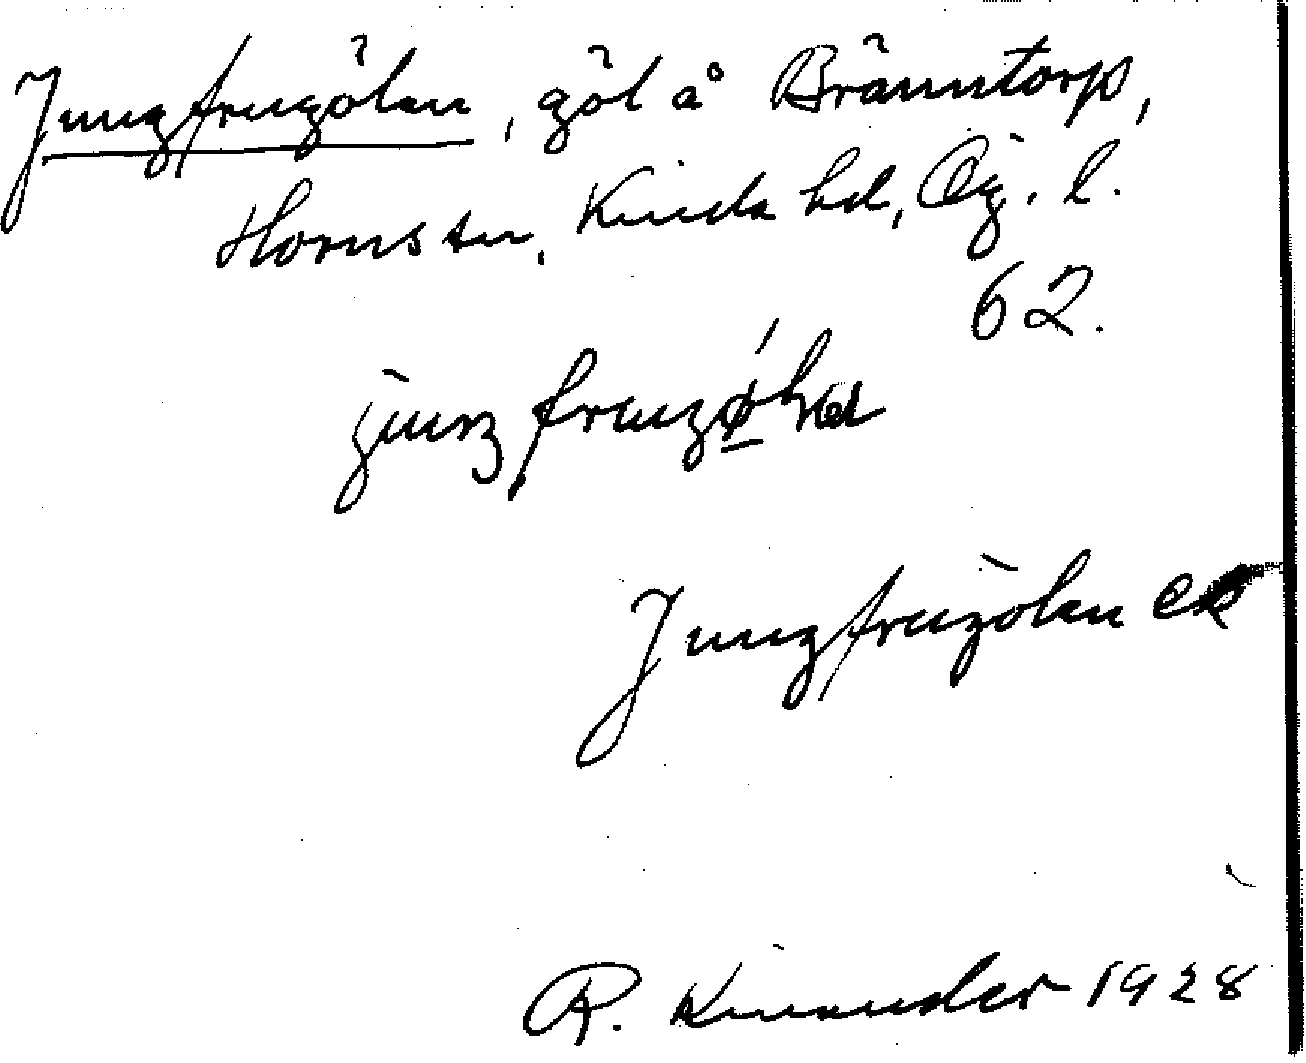 Jungfrugölen, göl å Bränntorp,
Horns sn, Kinda hd, Ög. l.
62.
Jungfrugölen ek
R. Kinander 1928